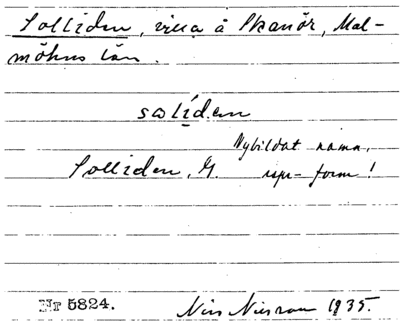 Solliden, villa å Skanör, Mal-
möhus län.
solíden
Nybildat namn,
Solliden, G. rspr-form!
Nr 5824. Nils Nilsson 1935.